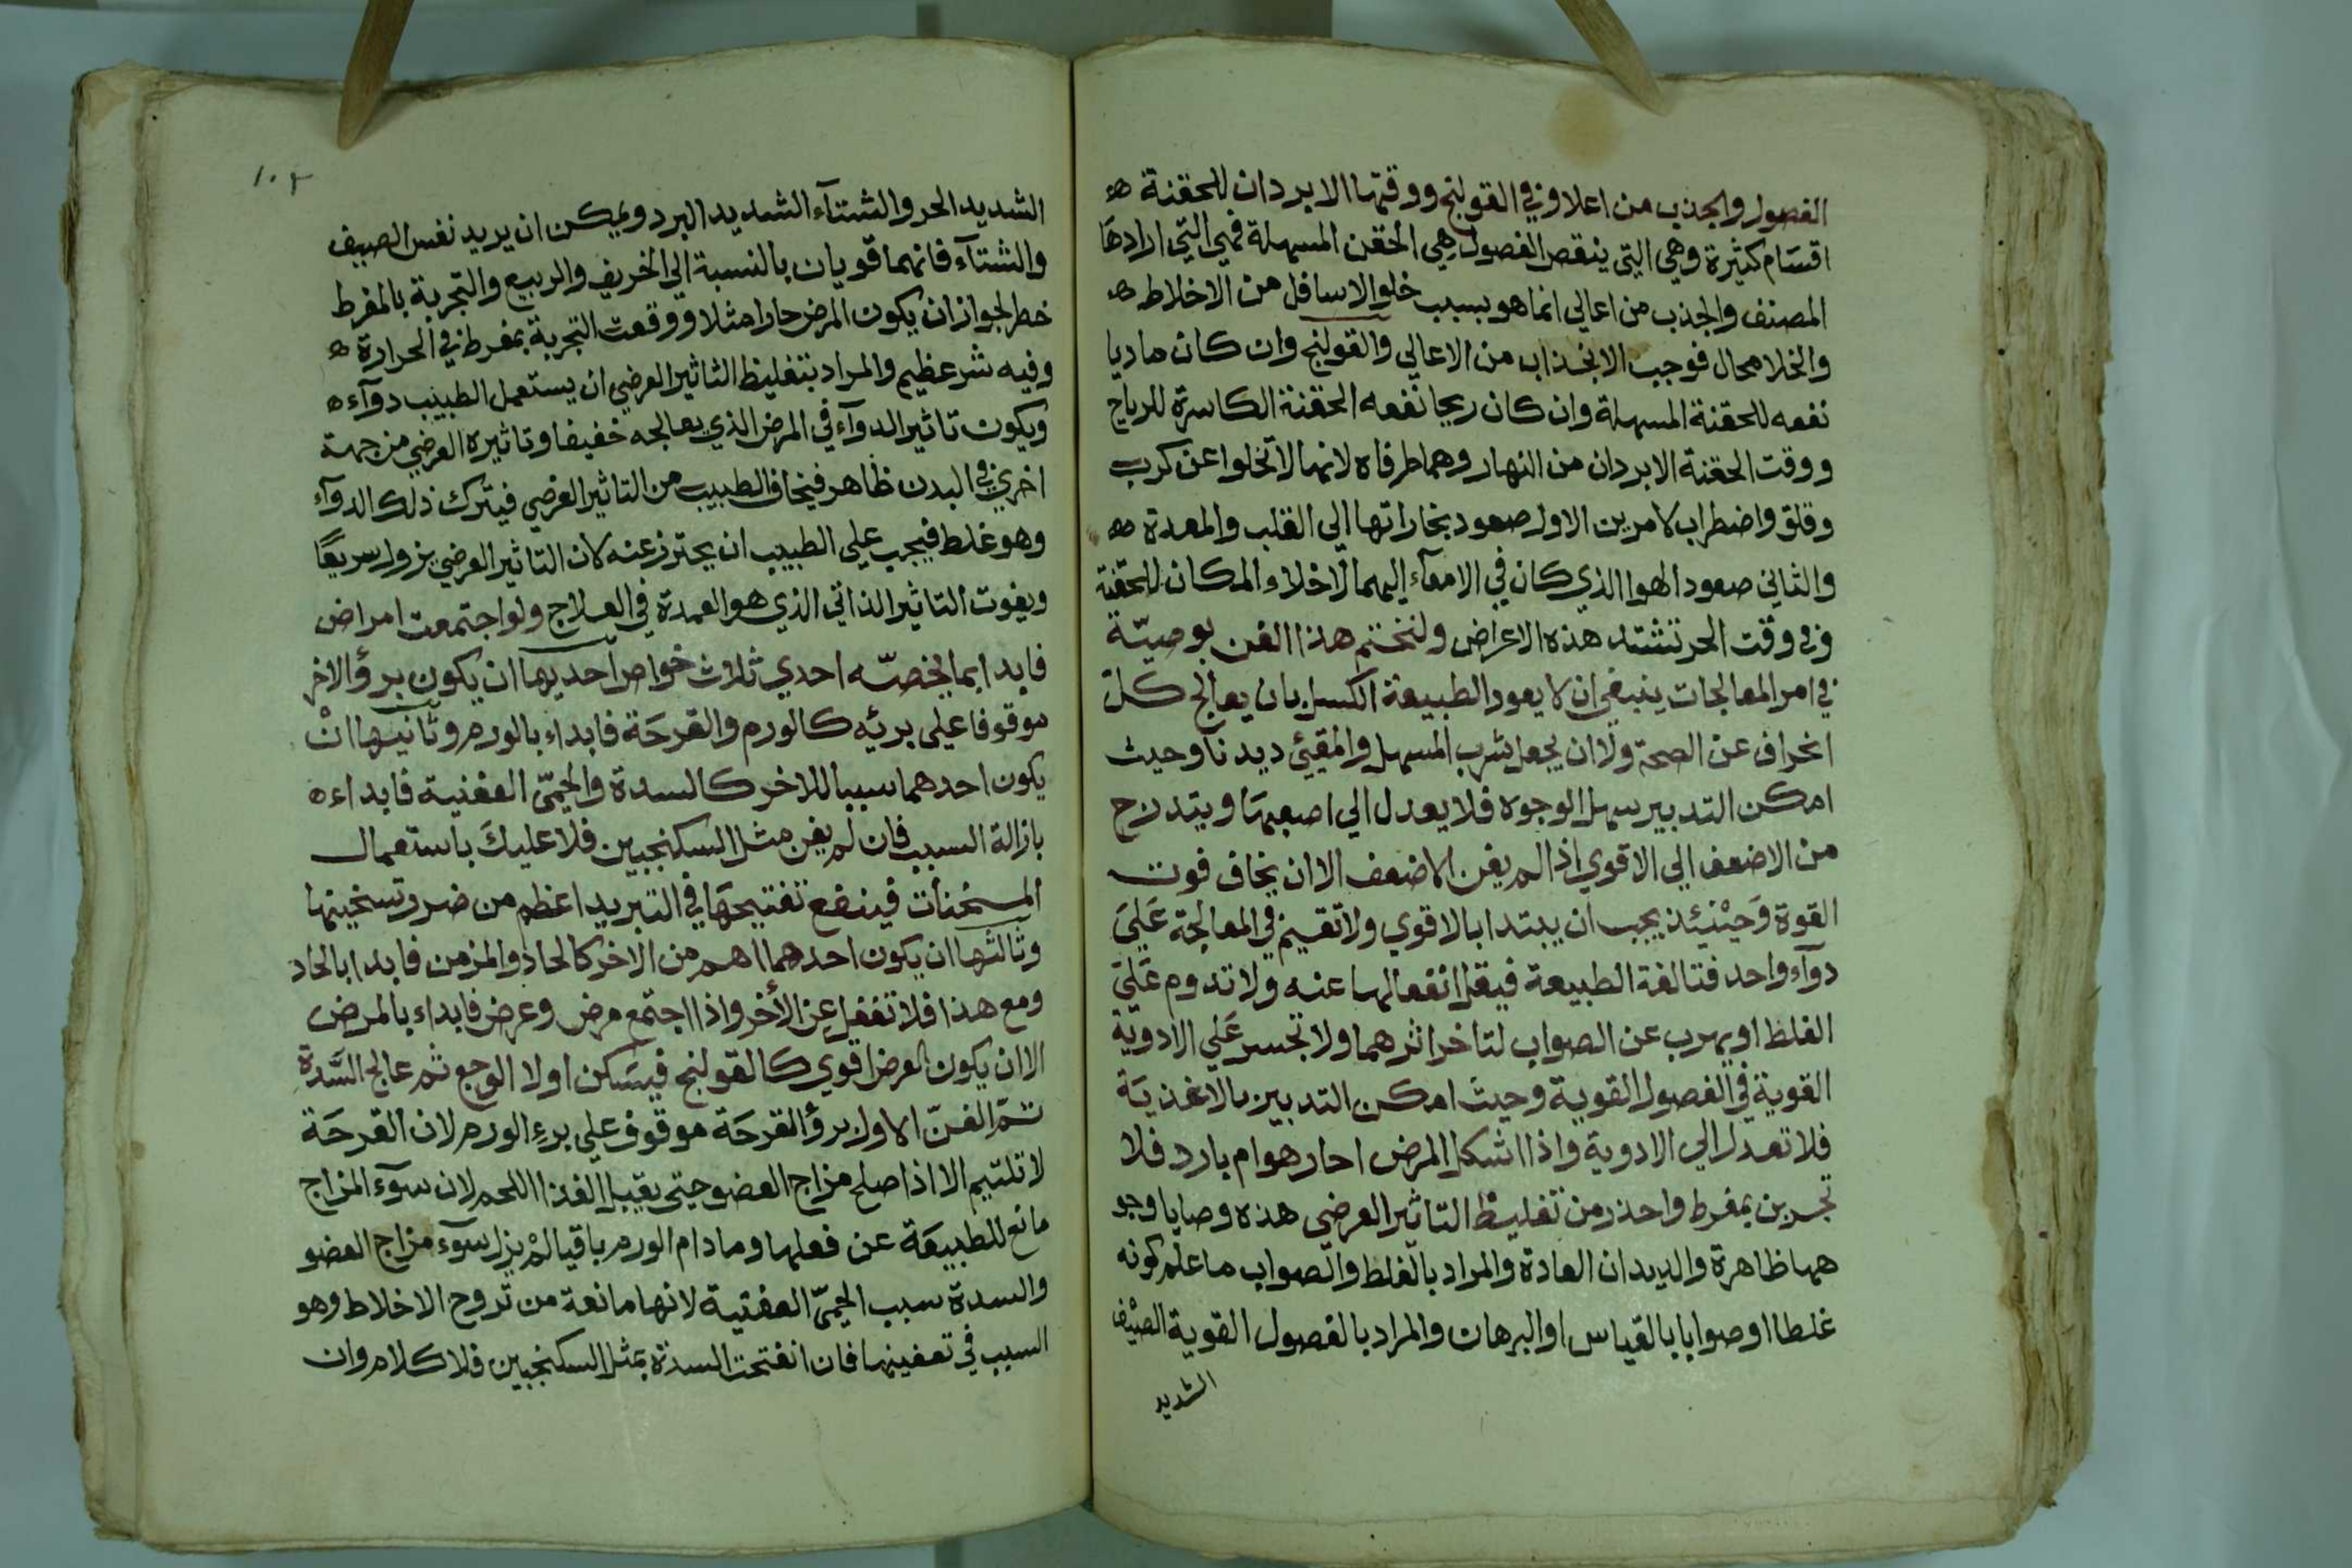 الفصول والجذب من اعلا وفي القولنج ووقتها الابردان للحقنة ه
اقسام كثيرة وهي التي ينقص الفصول هي الحقن المسهلة فهي التي ارادها
المصنف والجذب من اعالي انما هو بسبب خلو الاسافل من الاخلاط ه
والخلا محال فوجب الانجذاب من الاعالي والقولنج وان كان ماديا
نفعه للحقنة المسهلة وان كان ريحا نفعه الحقنة الكاسرة للرياح
ووقت الحقنة الابردان من النهار وهما طرفاه لانها لا تخلوا عن كرب
وقلق واضطراب لامرين الاول صعود بخاراتها الي القلب والمعدة ه
والثاني صعود الهوا الذي كان في الامعآء اليهما لاخلاء المكان للحقنة
وفي وقت الحر تشتد هذه الاعراض ولنختم هذا الفن بوصيّة
في امر المعالجات ينبغي ان لا يعود الطبيعة الكسل بان يعالج كل
انحراف عن الصحة ولا ان يجعل شرب المسهل والمقيئ ديدنا وحيث
امكن التدبير سهل الوجوه فلا يعدل الي اصعبها ويتدرج
من الاضعف الي الاقوي اذا لم يغن الاضعف الا ان يخاف فوت
القوة وَحِيْنَئِذ يجب ان يبتدا بالاقوي ولا تقيم في المعالجة عَلَيَ
دوآء واحد فتالفه الطبيعة فيقل انفعالها عنه ولا تدوم عَلَيَ
الغلط او يهرب عن الصواب لتاخر اثرهما ولا تجسر عَلي الادوية
القوية في الفصول القوية وحيث امكن التدبير بالاغذيَة
فلا تعدل الي الادوية واذا اشكل المرض احار هو ام بارد فلا
تجربن بمفرط واحذر من تغليظ التاثير العرضي هذه وصايا وجو
هها ظاهرة والديدان العادة والمراد بالغلط والصواب ما علم كونه
غلطا او صوابا بالقياس او البرهان والمراد بالفصول القوية الصيف
الشديد
١٠٤
الشديد الحر والشتآء الشديد البرد ويمكن ان يريد نفس الصيف
والشتآء فانهما قويان بالنسبة الي الخريف والربيع والتجربة بالمفرط
خطر لجواز ان يكون المرض حارا مثلا ووقعت التجربة بمفرط في الحرارة ه
وفيه شر عظيم والمراد بتغليظ التاثير العرضي ان يستعمل الطبيب دوآء ه
ويكون تاثير الدوآء في المرض الذي يعالجه خفيفا وتاثيره العرضي من جهة
اخري في البدن ظاهر فيخاف الطبيب من التاثير العرضي فيترك ذلك الدوآء
وهو غلط فيجب علي الطبيب ان يحترز عنه لان التاثير العرضي يزول سريعًا
ويفوت التاثير الذاتي الذي هو العمدة في العلاج ولو اجتمعت امراض
فابدا بما يخصّه احدي ثلاث خواص احديها ان يكون برؤ الاخر
موقوفا علي برئيه كالورم والقرحَة فابداء بالورم وثانيها انْ
يكون احدهما سببا للاخر كالسدة والحمّيَ العفنية فابداء ه
بازالة السبب فان لم يغن مثل السكنجبين فلا عليكَ باستعمال
المسخنات فينفع تفتيحهَا في التبريد اعظم من ضرر تسخينها
وثالثها ان يكون احدهما اهم من الاخر كالحاد والمزمن فابدا بالحاد
ومع هذا فلا تغفل عن الأخر واذا اجتمع مرض وعرض فابداء بالمرض
الا ان يكون العرض اقوي كالقولنج فيسَكن اولا الوجع ثم عالج السَّدة
تمّ الفنّ الاول برؤ القرحَة موقوف علي برءِ الورم لان القرحَة
لا تلتيم الا اذا صلح مزاج العضو حتي يقبل الغذا اللحم لان سوٓء المزاج
مانع للطبيعَة عن فعلها وما دام الورم باقيا لمْ يزل سوٓء مزاج العضو
والسدة سبب الحمّيَ العفنية لانها مانعة من تروح الاخلاط وهو
السبب في تعفينها فان انفتحت السدة بمثل السكنجبين فلا كلام وان